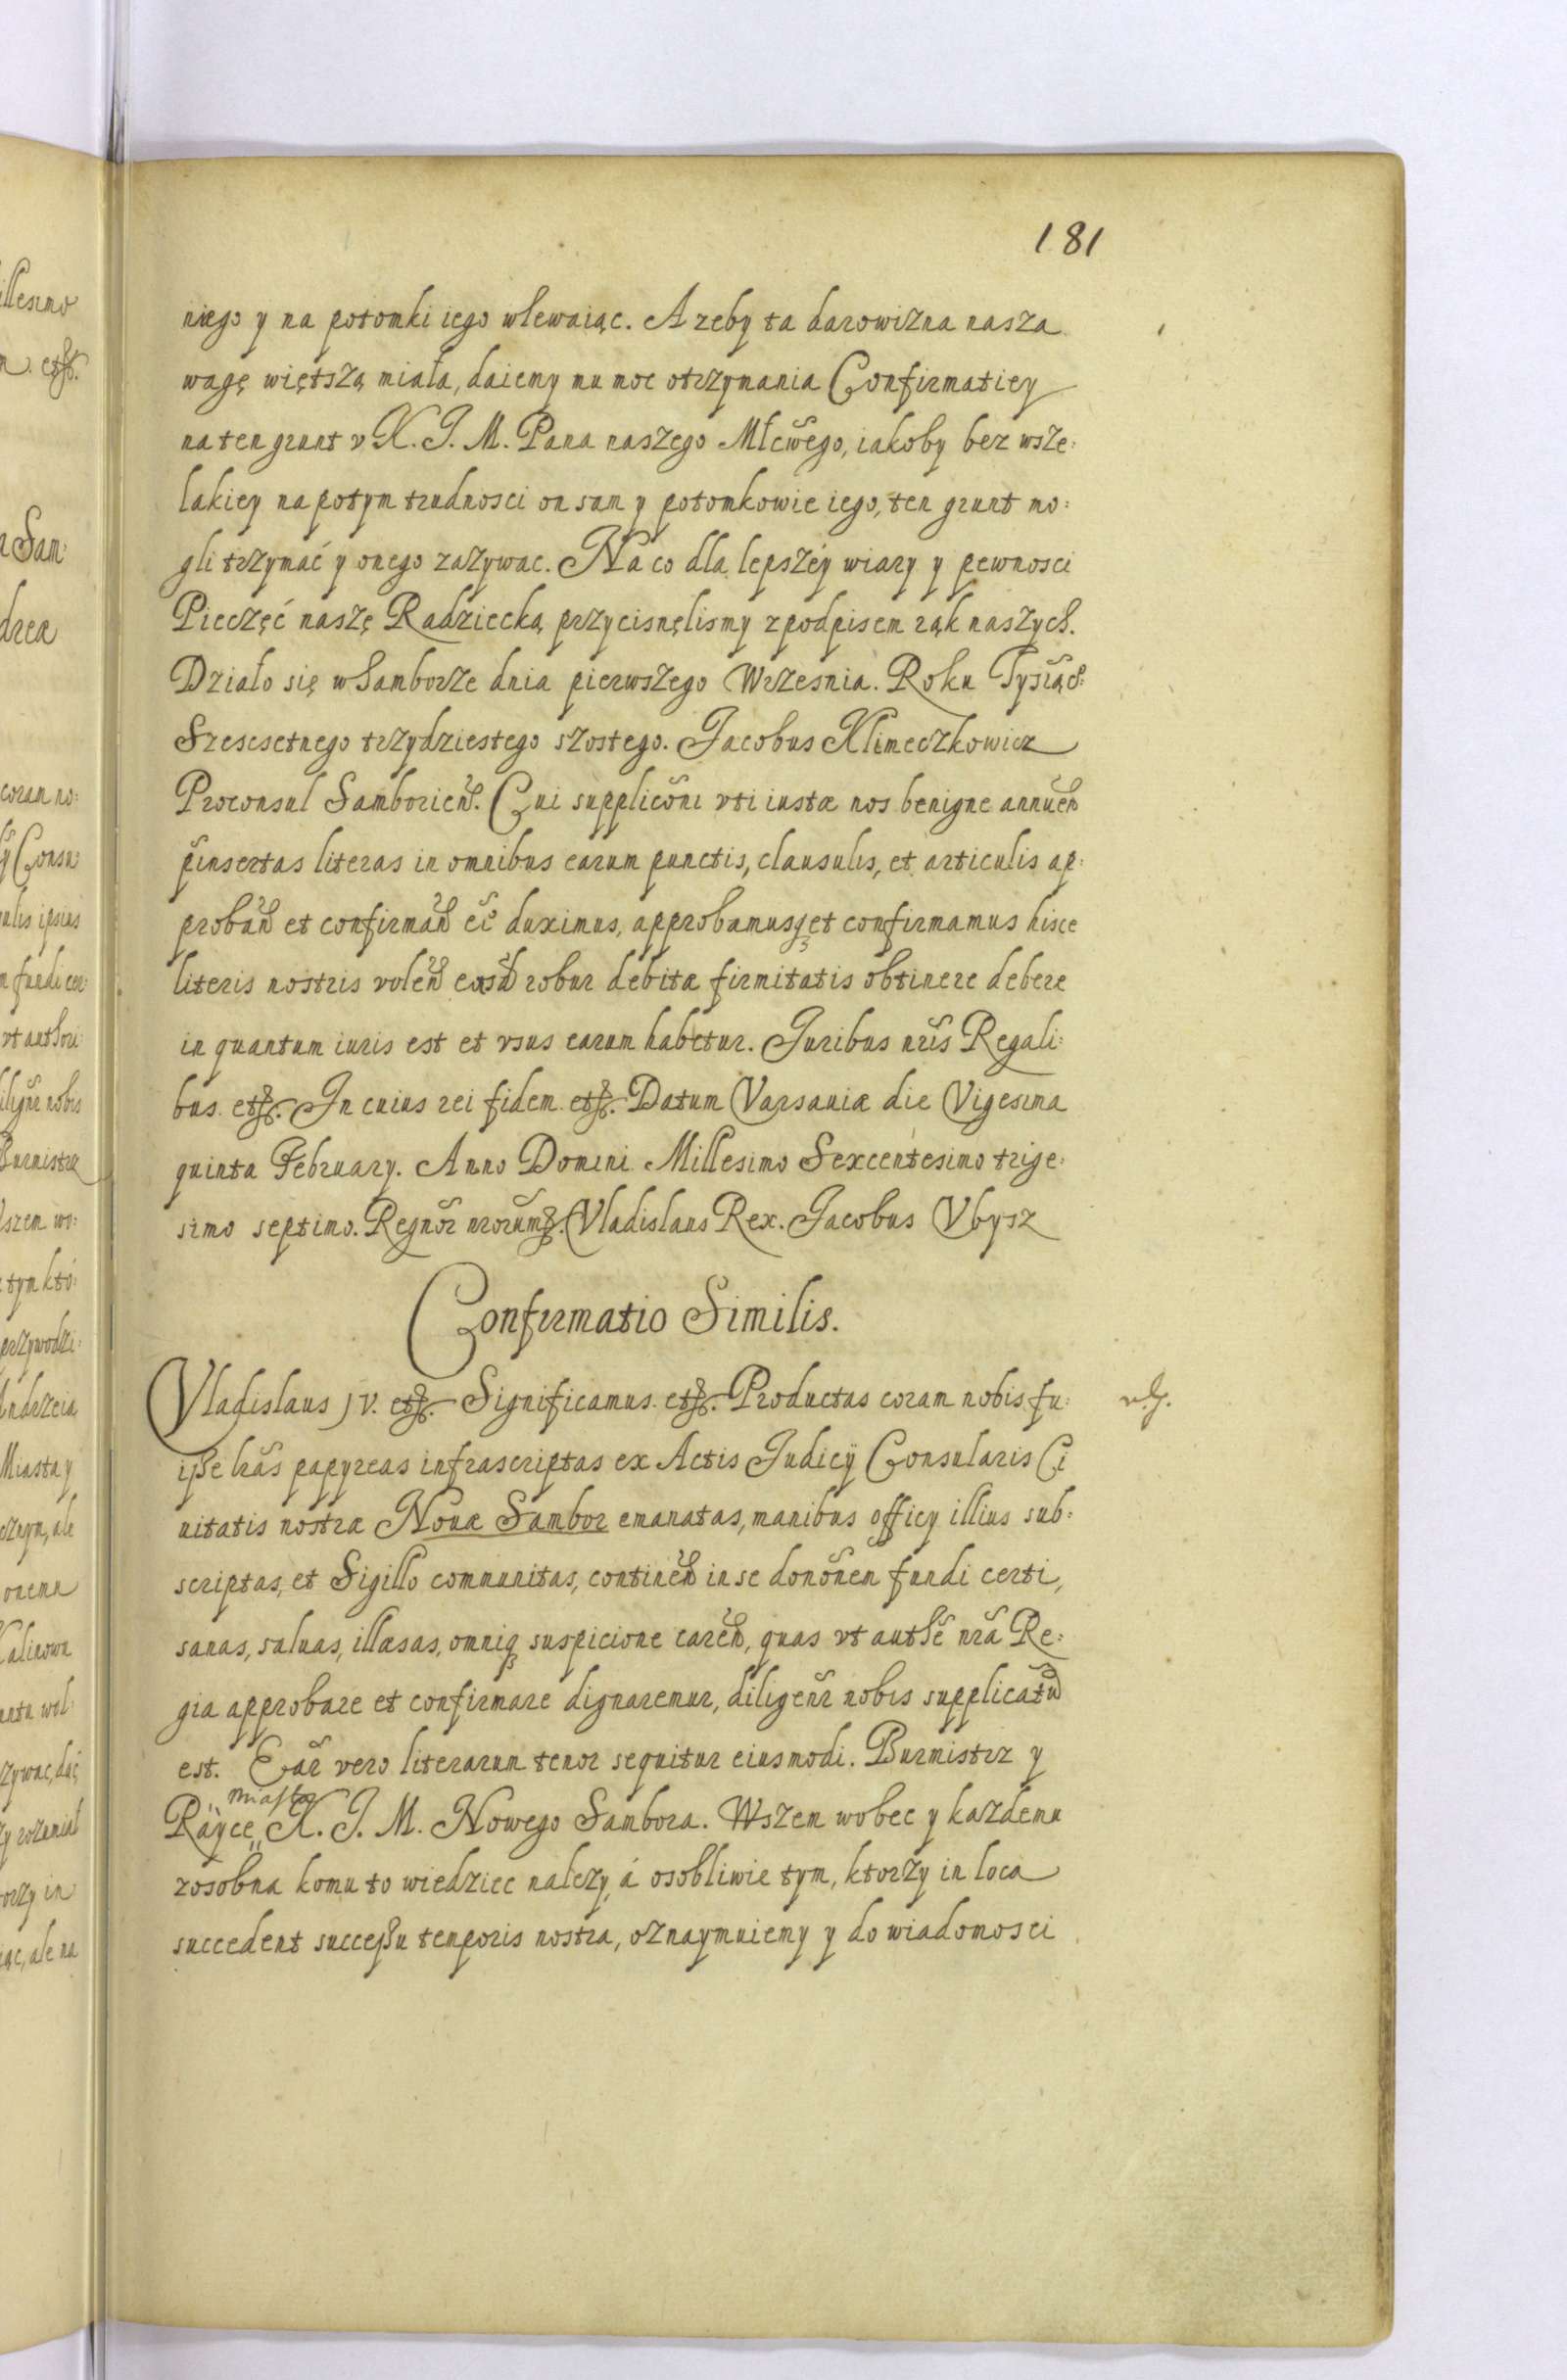 181
niego y na potomki iego wlewaiąc. A zeby ta darowizna nasza
wagę więtszą miała, daiemy mu moc otrzymania Confirmatiey
na ten grunt v K. J. M. Pana naszego Młčwego, iakoby bez wsze:
lakiey na potym trudnosci on sam y potomkowie iego, ten grunt mo:
gli trzymać y onego zazywac. Na co dla lepszéy wiary y pewnosci
Pieczęć naszę Radziecką przycisnęlismy z podpisem rąk naszych.
Działo się w Samborze dnia pierwszego Wrzesnia. Roku Tysiąc:
Szescsetnego trzydziestego szostego. Jacobus Klimeczkowicz
Proconsul Samborień. Cui supplicōni vti iustæ nos benigne annueñ
p̄insertas literas in omnibus earum punctis, clausulis, et articulis ap:
probañ et confirmañ eē duximus, approbamusq; et confirmamus hisce
literis nostris voleñ easd robur debitæ firmitatis obtinere debere
in quantum iuris est et vsus earum habetur. Juribus nr̄is Regali:
bus. etc. In cuius rei fidem. etc. Datum Varsauiæ die Vigesima
quinta February. Anno Domini Millesimo Sexcentesimo trige:
simo septimo. Regnōr nrorum etc. Vladislaus Rex. Jacobus Vbysz
Confirmatio Similis.
Vladislaus IV. etc. Significamus. etc. Productas coram nobis fu:
isse lr̄as papyreas infrascriptas ex Actis Judicÿ Consularis Ci
uitatis nostræ Nouæ Sambor emanatas, manibus officy illius sub:
scriptas, et Sigillo communitas, contineñ in se donōnem fundi certi,
sanas, saluas, illæsas, omniq; suspicione careñ, quas vt authē nr̄a Re:
gia approbare et confirmare dignaremur, diligēnr nobis supplicatū
est. Eār vero literarum tenor sequitur eiusmodi. Burmistrz y
miasta
Rayce K. J. M. Nowego Sambora. Wszem wobec y kazdemu
zosobna komu to wiedziec nalezy, á osobliwie tym, ktorzy in loca
succedent successu temporis nostra, oznaymuiemy y do wiadomosci